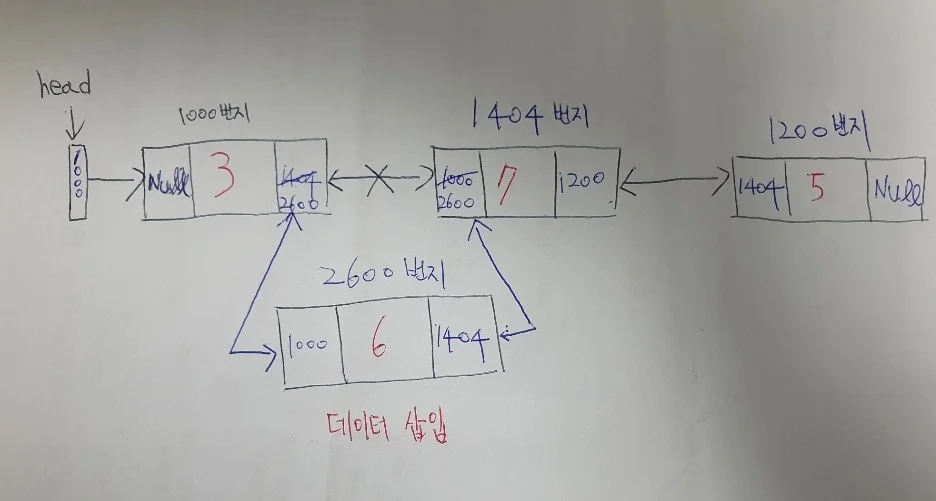 head
1000
1000번지
Null 3 1404
2600
1404번지
1000 7 1200
2600
1200번지
1404 5 Null
2600번지
1000 6 1404
데이터 삽입